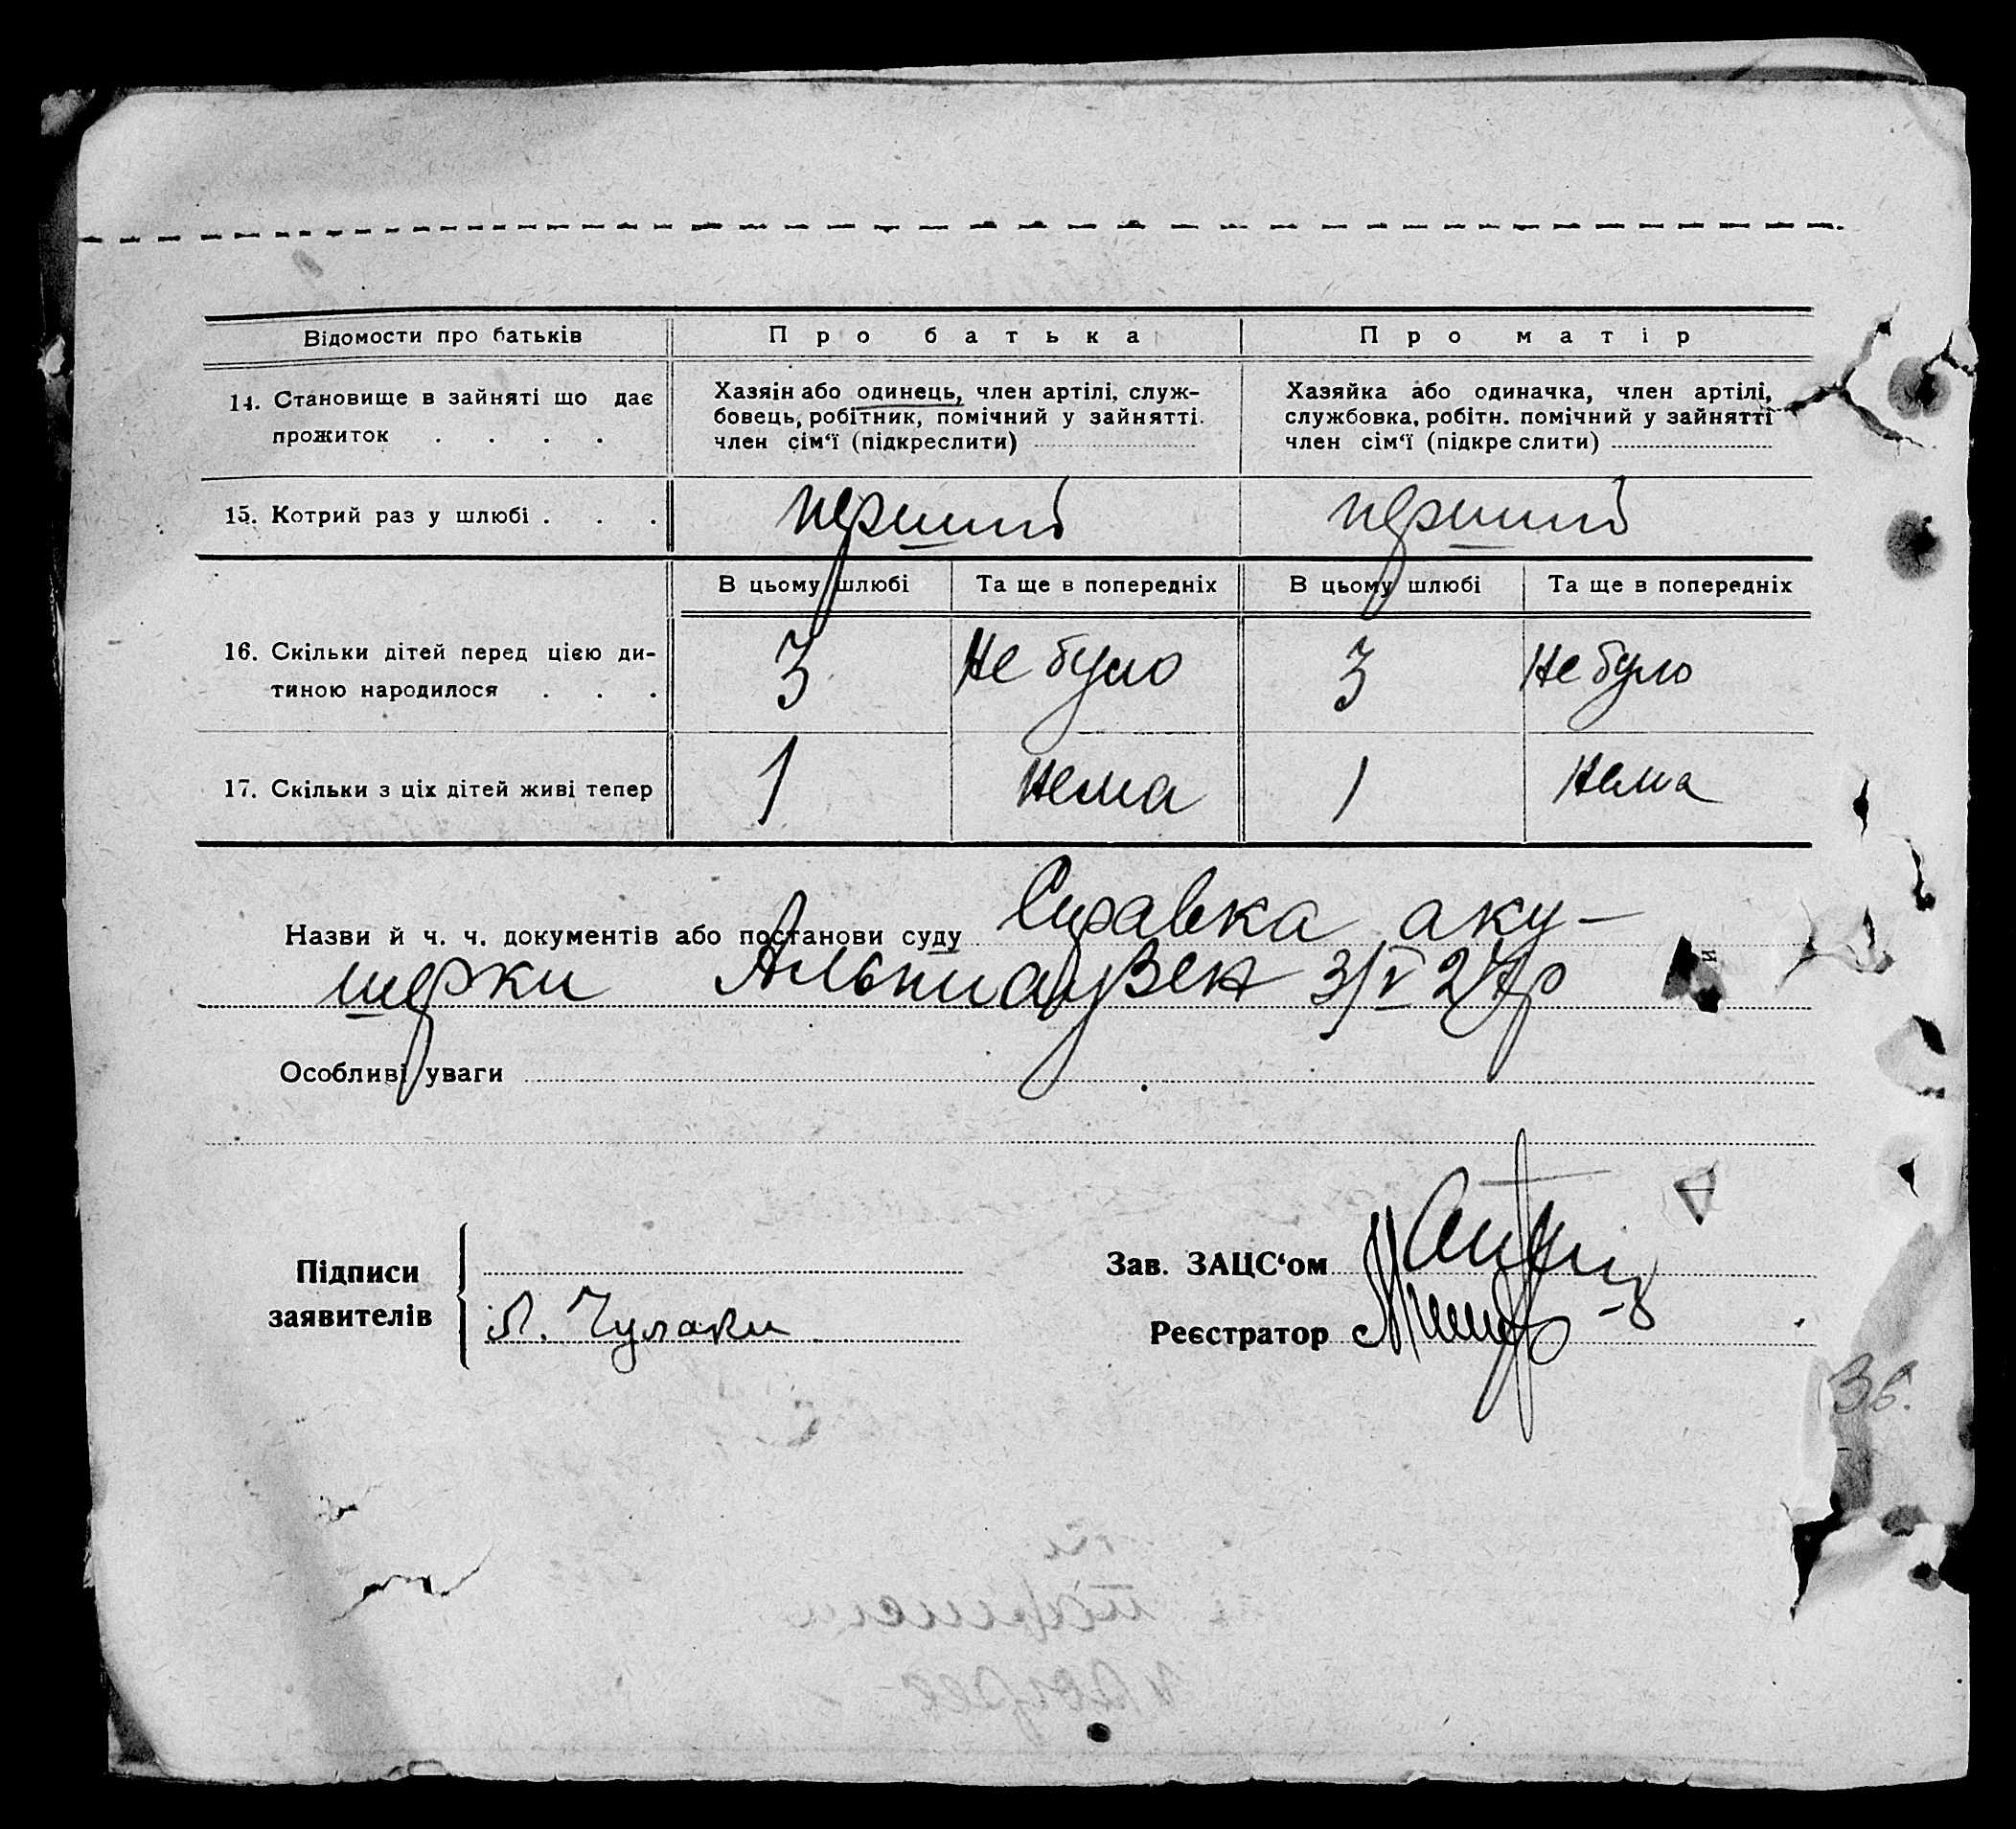 Відомости про батьків Про батька Про матір
14. Становище в зайняті що дає
прожиток . . . .
Хазяін або одинець, член артілі, служ-
бовець, робітник, помічний у зайнятті.
член сім‘ї (підкреслити)
Хазяйка або одиначка, член артілі,
службовка, робітн. помічний у зайнятті
член сім‘ї (підкре слити)
15. Котрий раз у шлюбі . . . перший перший
В цьому шлюбі Та ще в попередніх В цьому шлюбі Та ще в попередніх
16. Скільки дітей перед цією ди-
тиною народилося . . .
3 не було 3 не було
17. Скільки з ціх дітей живі тепер 1 нема 1 нема
Назви й ч. ч. документів або постанови суду Справка аку-
шерки 3/V 27р
и
Особливі уваги
Підписи
заявителів
Л. Чулаки
Зав. ЗАЦС‘ом
Реєстратор
36.